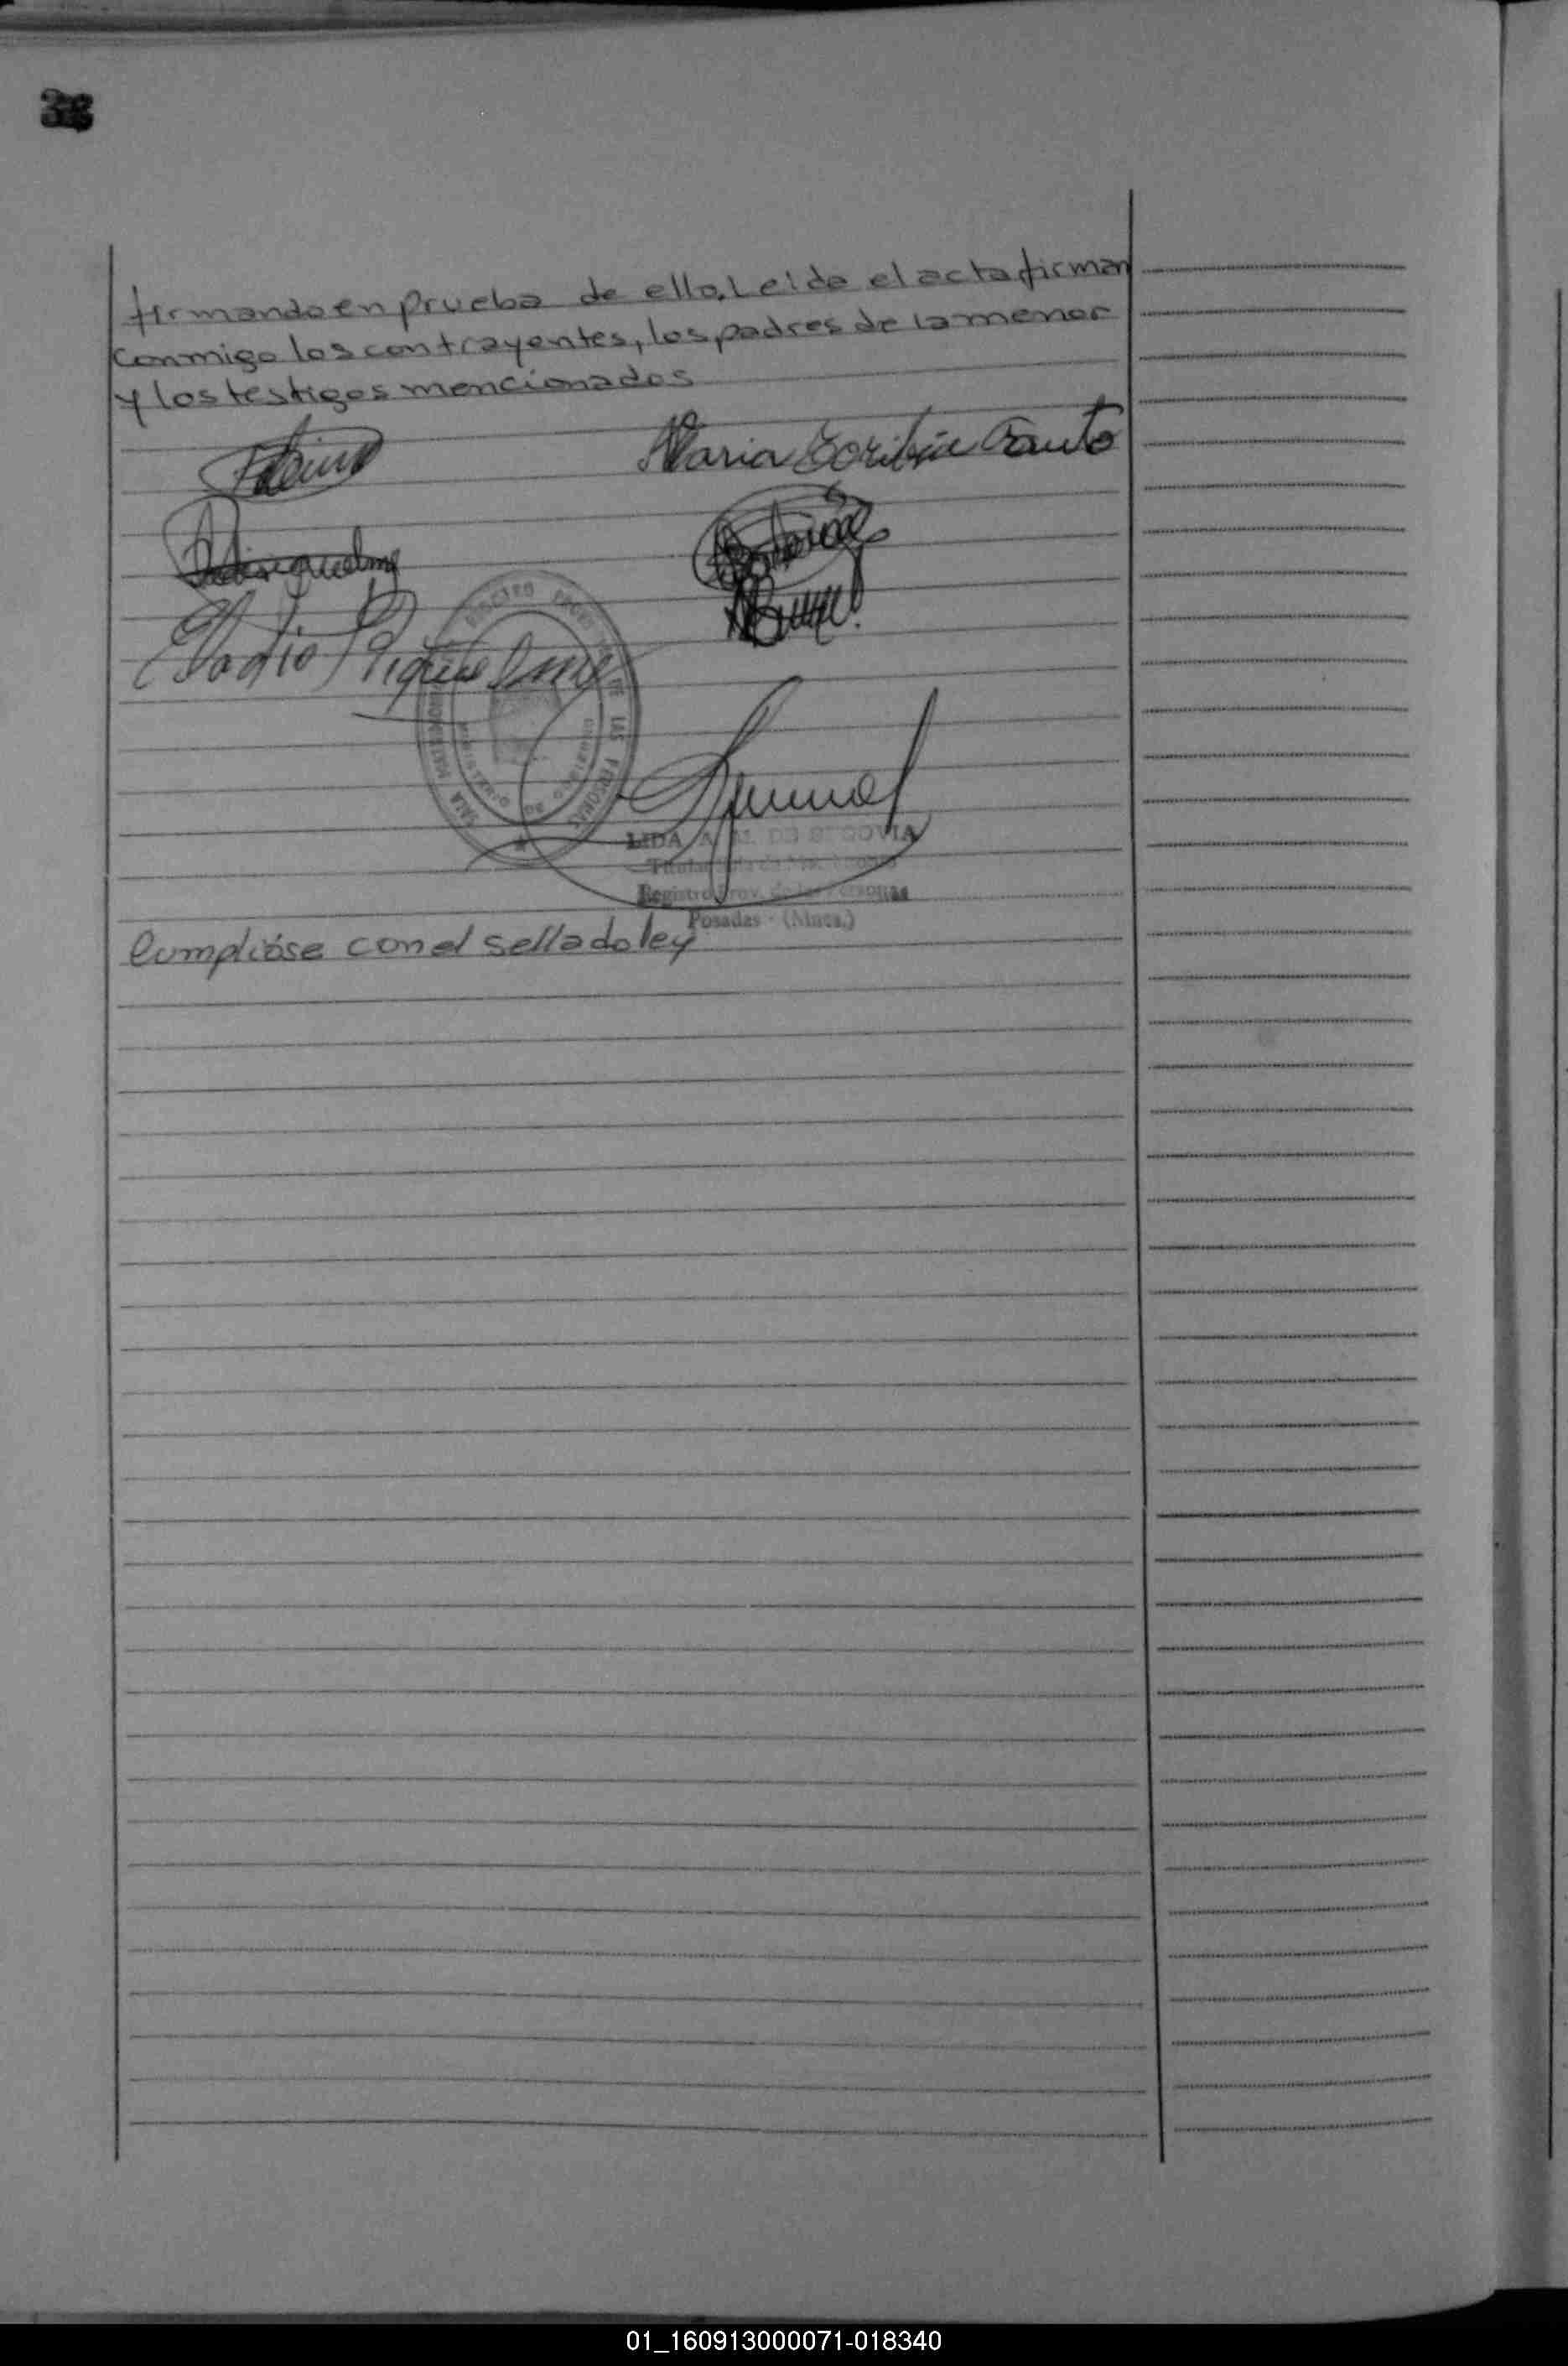 firmando en prueba de ello. Leida el acta firman
conmigo los contrayentes, los padres de la menor
y los testigos mencionados
Maria
Eladio Riquelme
REGISTRO PROV. DE LAS PERSONAS
SALA
LIDA A. DE SEGOVIA
Titular Sala de
Registro Prov. de las Personas
Posadas - (Mnes.)
Cumplióse con el sellado ley
01_160913000071-018340